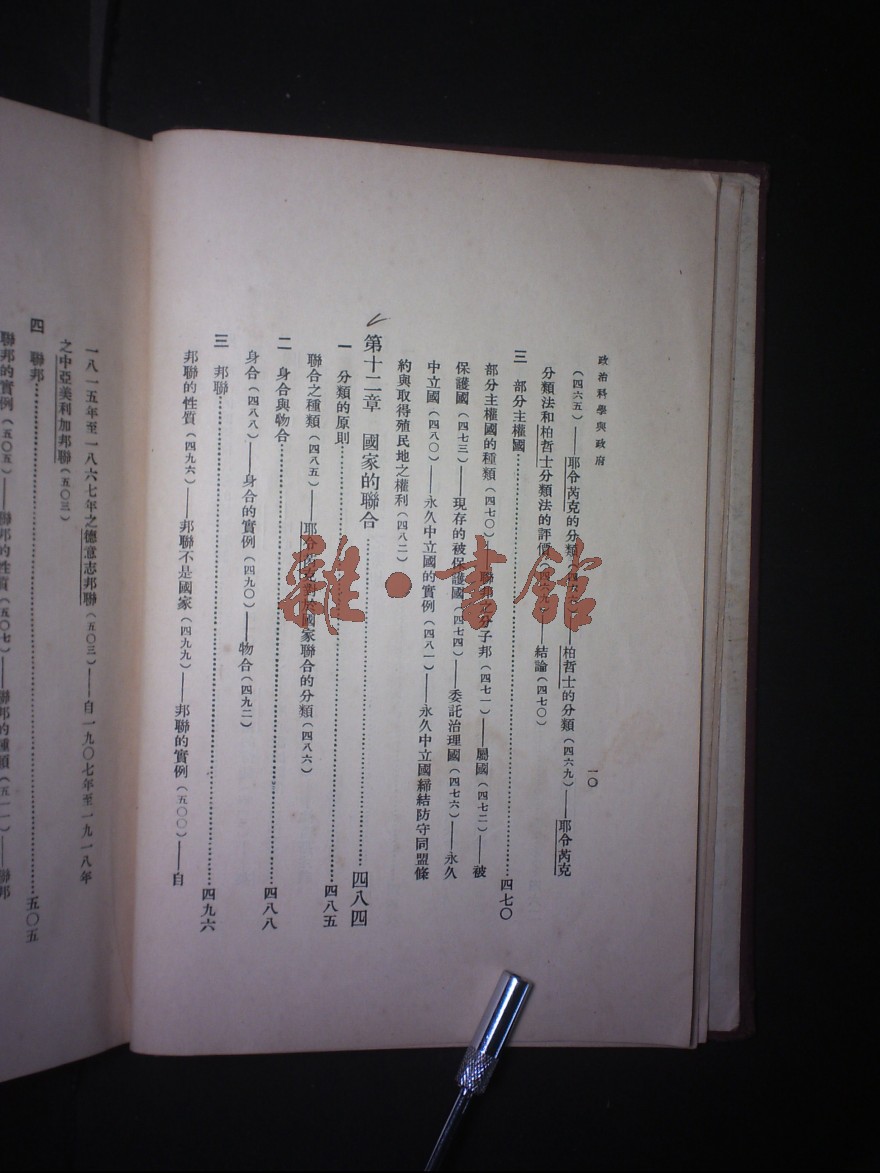 政治科學與政府
一〇
(四六五)——耶令芮克的分類(四六六)——柏哲士的分類(四六九)——耶令芮克
分類法和柏哲士分類法的評價——結論(四七〇)
三 部分主權國……四七〇
部分主權國的種類(四七〇)——聯邦之分子邦(四七一)——屬國(四七二)——被
保護國(四七三)——現存的被保護國(四七四)——委託治理國(四七六)——永久
中立國(四八〇)——永久中立國的實例(四八一)——永久中立國締結防守同盟條
約與取得殖民地之權利(四八二)
第十二章 國家的聯合……四八四
一 分類的原則……四八五
聯合之種類(四八五)——耶令芮克對於國家聯合的分類(四八六)
二 身合與物合……四八八
身合(四八八)——身合的實例(四九〇)——物合(四九二)
三 邦聯……四九六
邦聯的性質(四九六)——邦聯不是國家(四九九)——邦聯的實例(五〇〇)——自
一八一五年至一八六七年之德意志邦聯(五〇三)——自一九〇七年至一九一八年
之中亞美利加邦聯(五〇三)
四 聯邦……五〇五
聯邦的實例(五〇五)——聯邦的性質(五〇七)——聯邦的種類(五一一)——聯邦
雜·書館